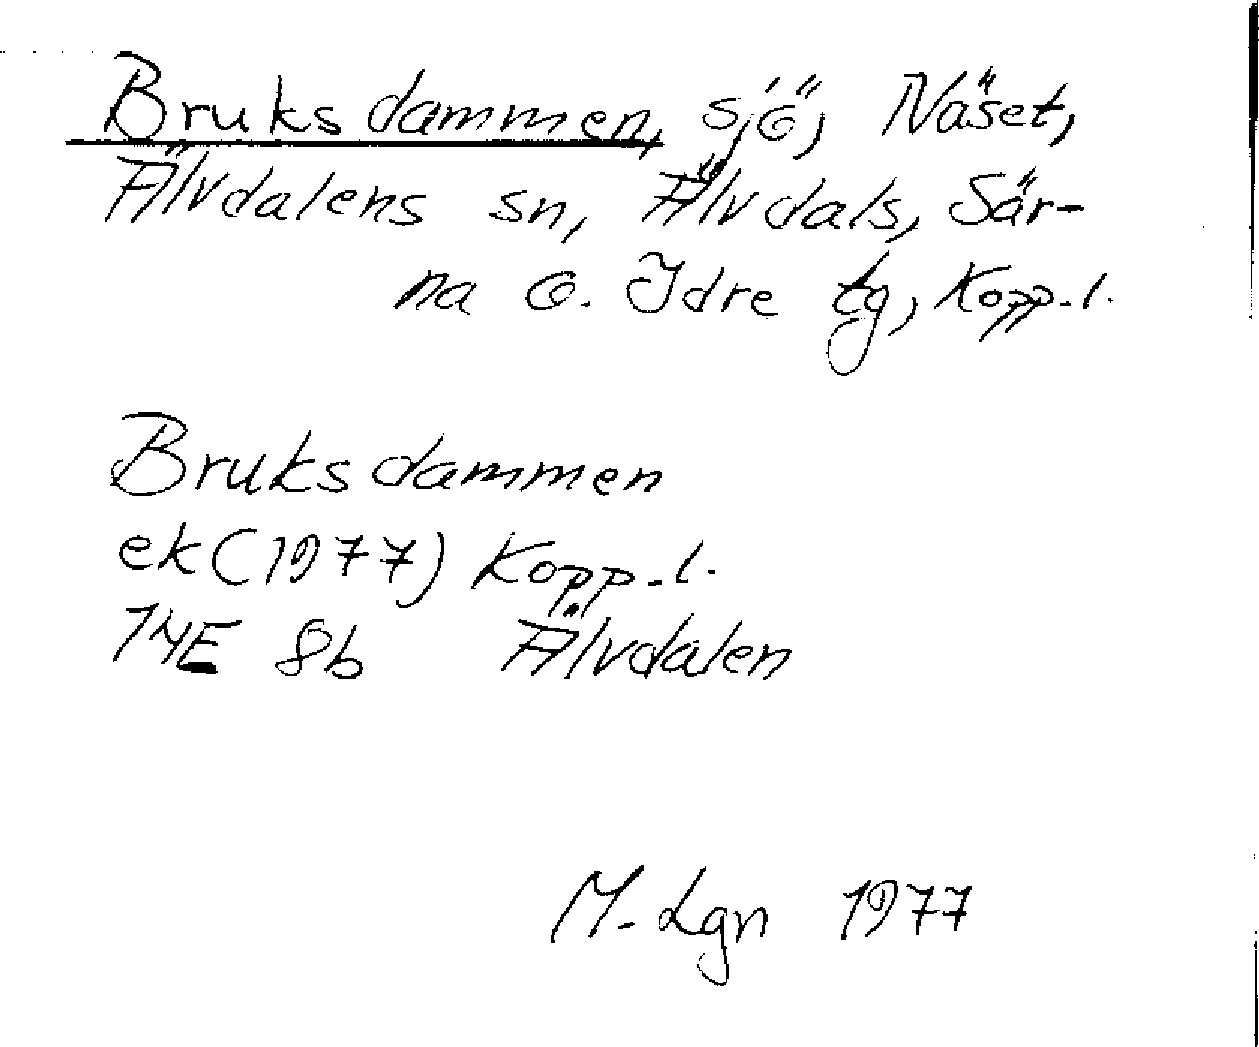 Bruksdammen, sjö, Näset,
Älvdalens sn, Älvdals, Sär-
na o. Idre tg, Kopp. l.
Bruksdammen
ek (1977) Kopp. l.
14E 8b Älvdalen
M. Lgn 1977